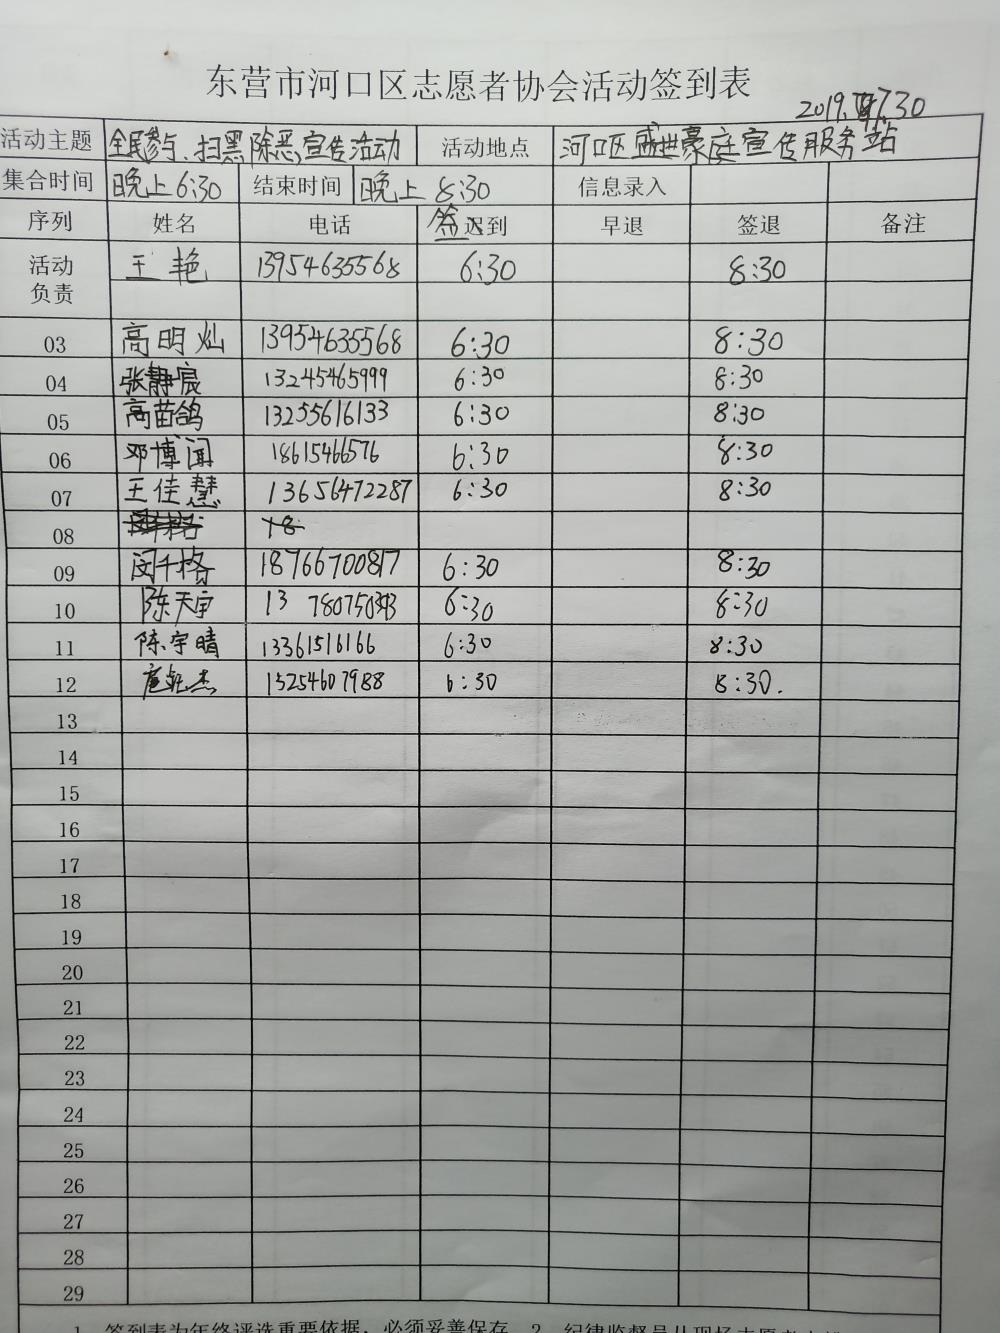 东营市河口区志愿者协会活动签到表
2019.7.30
活动主题 全民参与、扫黑除恶,宣传活动 活动地点 河口区盛世豪庭宣传服务站
集合时间 晚上6:30 结束时间 晚上8:30 信息录入
序列 姓名 电话 签到 早退 签退 备注
活动负责 王艳 13954635568 6:30 8:30
03 高明灿 13954635568 6:30 8:30
04 张静宸 13245465999 6:30 8:30
05 高苗鸽 13255616133 6:30 8:30
06 邓博闻 18615466576 6:30 8:30
07 王佳慧 13656472287 6:30 8:30
08 18
09 闵千格 18766700817 6:30 8:30
10 陈天宇 13 6:30 8:30
11 陈宇晴 13361516166 6:30 8:30
12 杰 15254607988 6:30 8:30.
13
14
15
16
17
18
19
20
21
22
23
24
25
26
27
28
29
1、签到表为年终评选重要依据，必须妥善保存 2、纪律监督员从现场志愿者